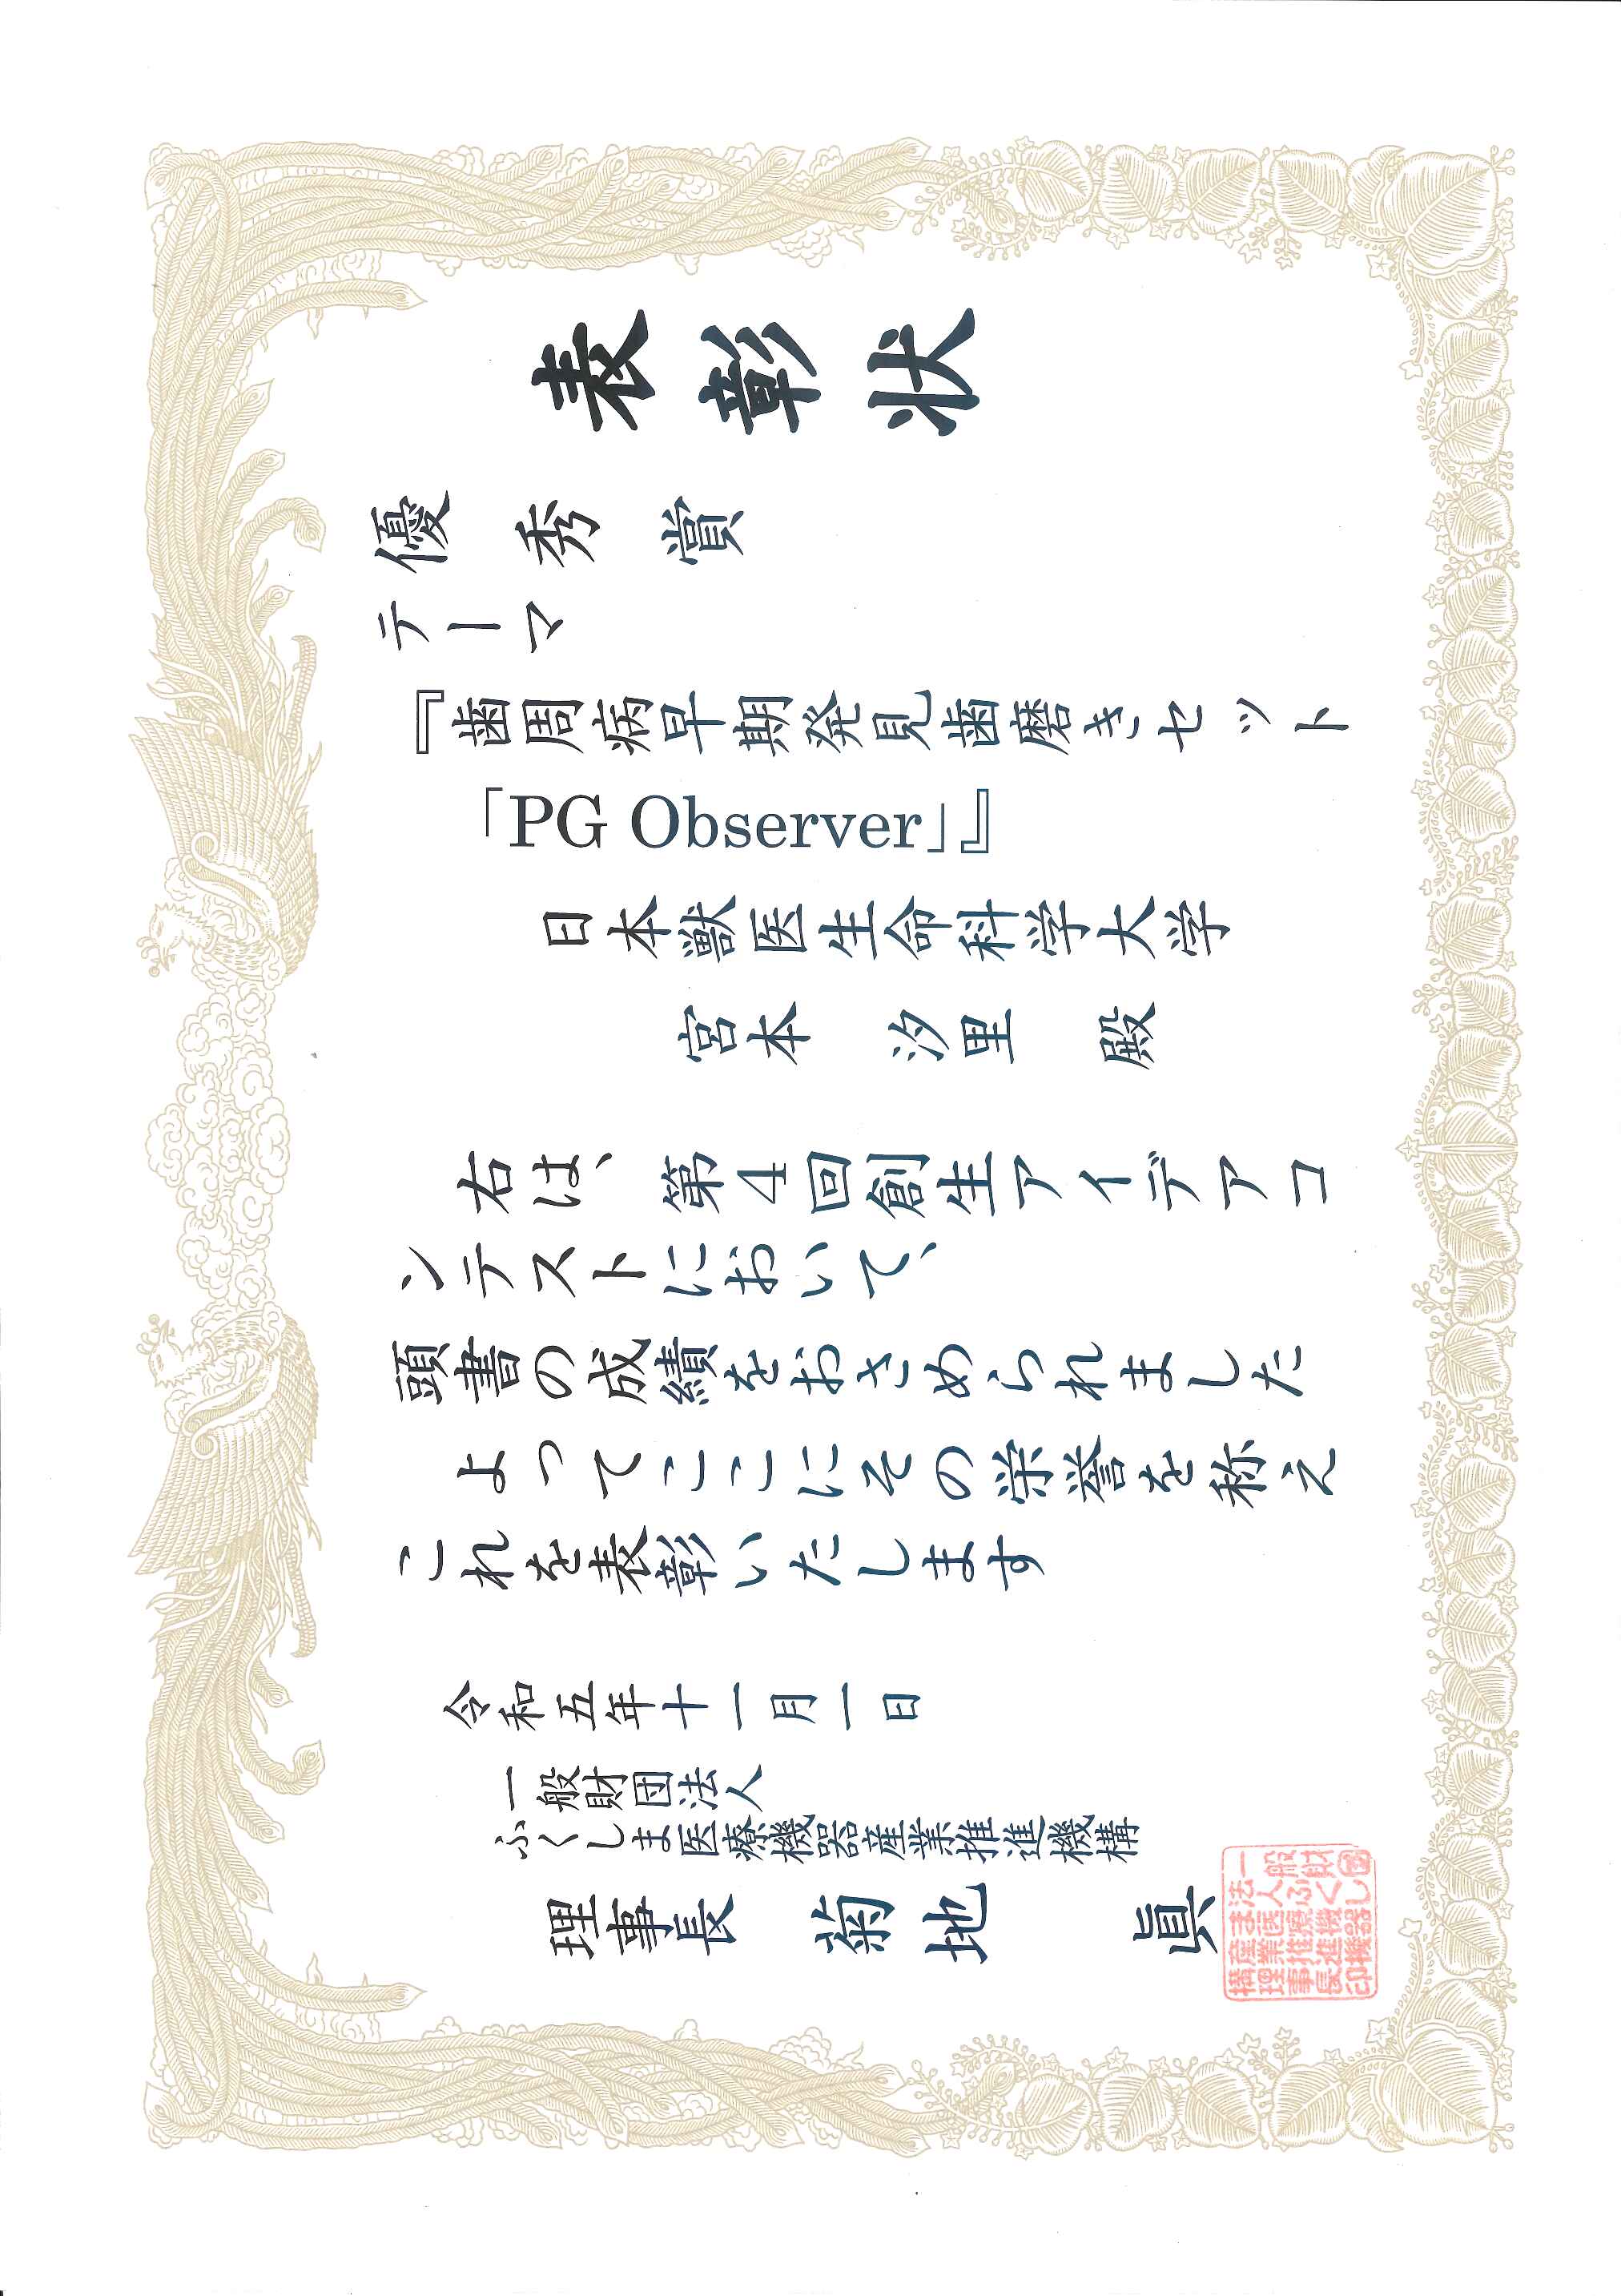 表彰状
優秀賞
テーマ
『歯周病早期発見歯磨きセット
「PG Observer」』
日本獣医生命科学大学
宮本 汐里 殿
右は、第4回創生アイデアコ
ンテストにおいて、
頭書の成績をおさめられました
よってここにその栄誉を称え
これを表彰いたします
令和五年十一月一日
一般財団法人
ふくしま医療機器産業推進機構
理事長 菊地 眞
一般財団
法人ふくし
ま医療機器
産業推進機
構理事長印